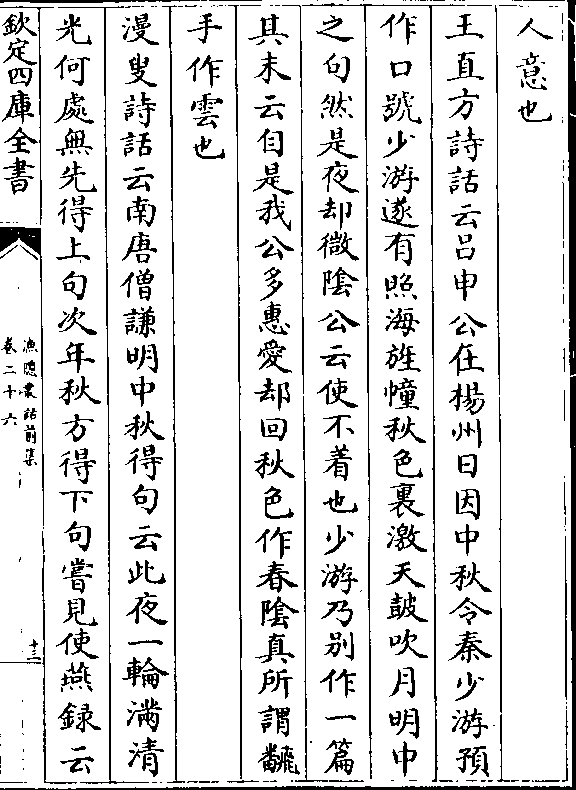 人意也
王直方詩話云吕申公在楊州日因中秋令秦少游預
作口號少游遂有照海旌幢秋色裏激天鼓吹月明中
之句然是夜却微陰公云使不着也少游乃别作一篇
其末云自是我公多惠愛却回秋色作春陰真所謂飜
手作雲也
漫叟詩話云南唐僧謙明中秋得句云此夜一輪滿清
光何處無先得上句次年秋方得下句嘗見使燕録云
欽定四庫全書
漁隠叢話前集
卷二十六
十三